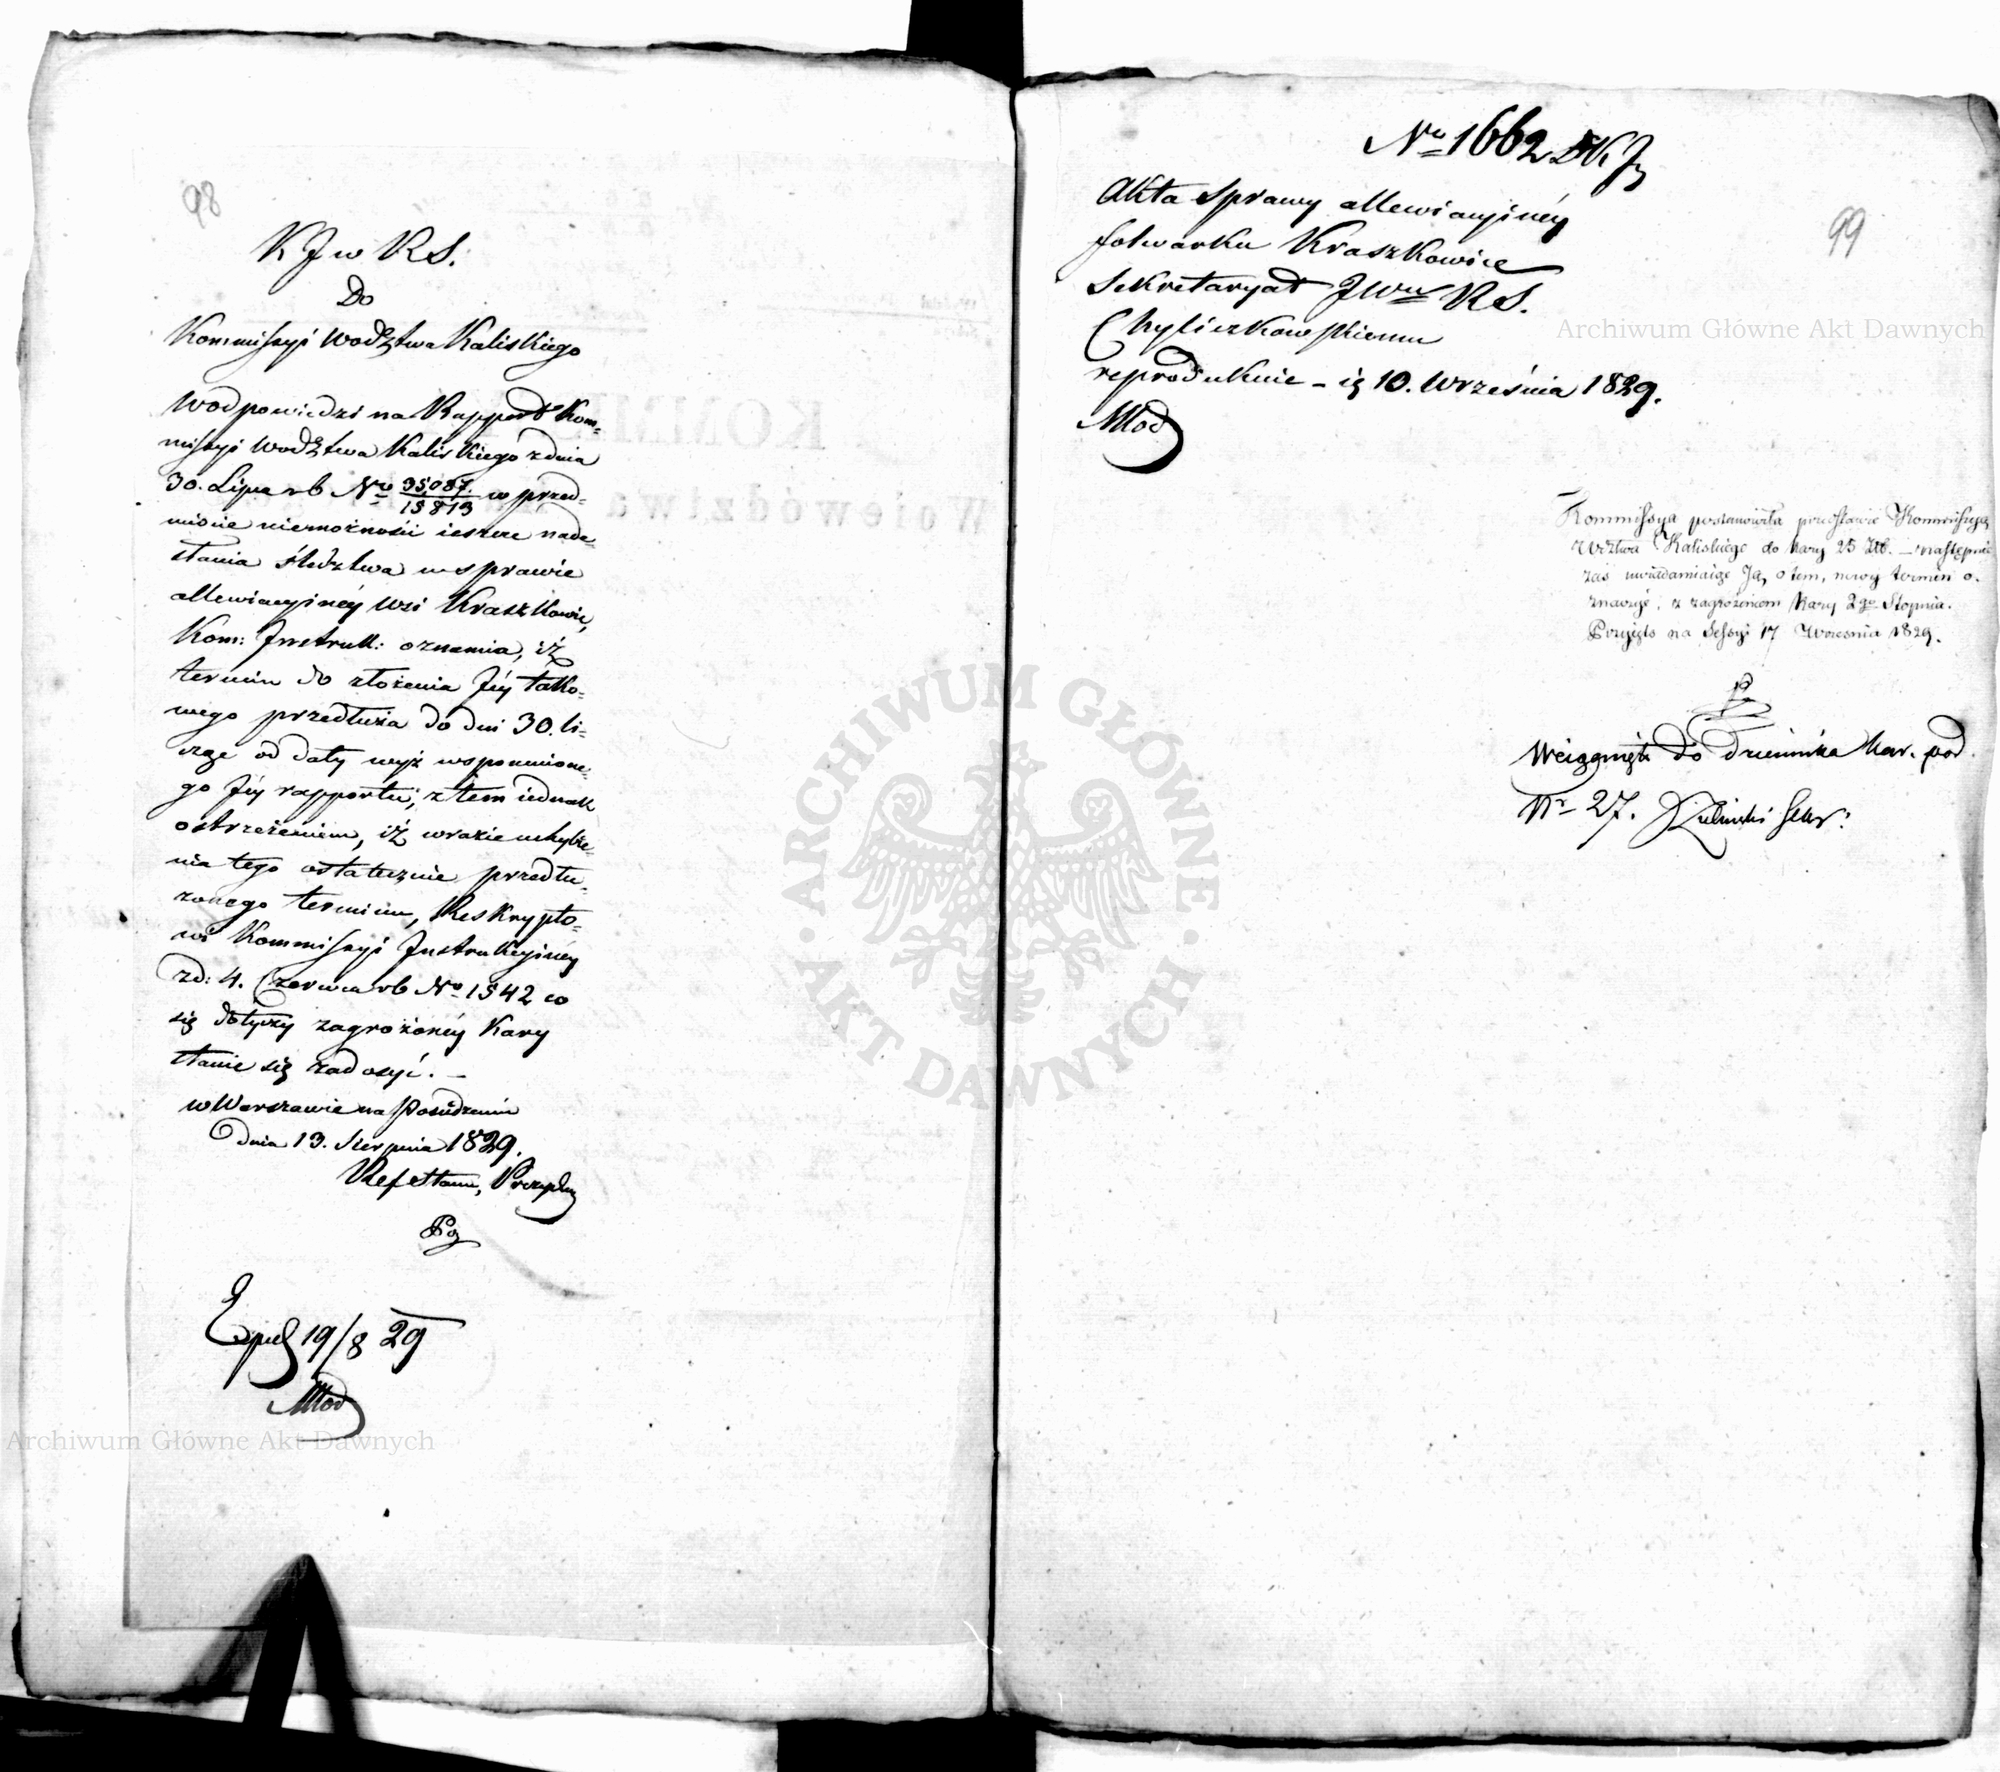 98
K J w K S.
Do
Kommissyi Wodztwa Kaliskiego
W odpowiedzi na Rapport Kom=
missyi Wodztwa Kaliskiego z dnia
30. Lipca rb No 35,087. w przed=
15813
miocie niemożności ieszcze nade=
słania śledztwa w sprawie
allewiacyinéy wsi Kraszkowic,
Kom: Instruk: oznamia, iż
termin do złożenia Jéy tako=
wego przedłuża do dni 30. li=
cząc od daty wyż wspomnione=
go Jéy rapportu, z tem iednak
ostrzeżeniem, iż w razie uchybie=
nia tego ostatecznie przedłu=
żonego terminu, Reskrypto=
wi Kommissyi Instrukcyinéy
z d: 4. Czerwca rb No 1542 co
się dotyczy zagrożonéy Kary
stanie się zadosyć. –
w Warszawie na Posiedzeniu
dnia 13. Sierpnia 1829.
Ref Stanu,
19/8 29
Młod
No 1662
Akta sprawy allewiacyinéy
folwarku Kraszkowice
Sekretaryat JWu KS.
Chyliczkowskiemu
reprodukuie – ię 10. Września 1829.
Młod
99
Kommissya postanowiła przedstawić Kommissyą
Wdztwa Kaliskiego do kary 25 Złł. – następnie
zaś uwiadamiaiąc Ją o tem, nowy termin o=
znaczyć, z zagrożeniem kary 2go Stopnia.
Przyięto na Sessyi 17 Września 1829.
Wciągnięto do dziennika kar. pod
Nr 27. Sekr:
Archiwum Główne Akt Dawnych
ARCHIWUM GŁÓWNE · AKT DAWNYCH ·
Archiwum Główne Akt Dawnych